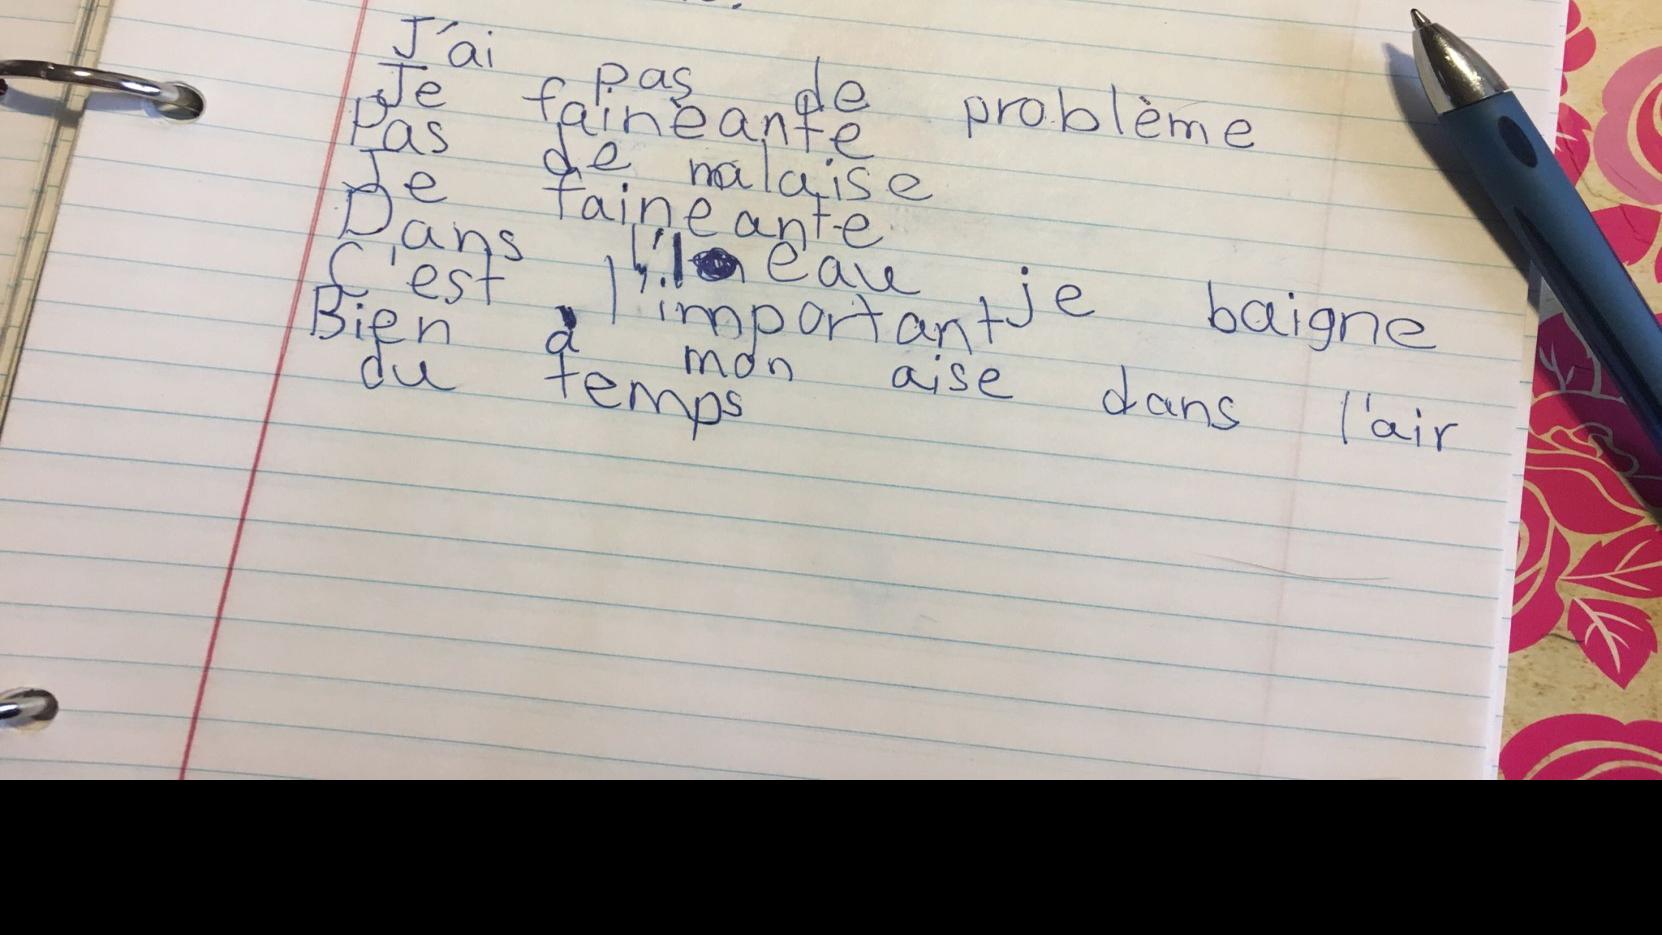 J'ai pas de problème
Je fainèante
Pas de malaise
Je fainéante
Dans l'eau je baigne
C'est l'important
Bien à mon aise dans l'air
du temps